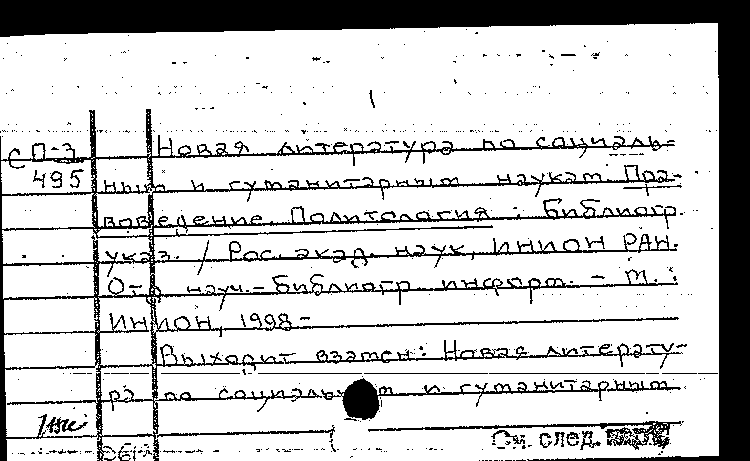 С П-3
495
Новая литература по социаль-
ным и гуманитарным наукам. Пра-
воведение. Политология : Библиогр.
указ. / Рос. акад. наук, ИНИОН РАН.
Отд. науч.-библиогр. информ. - М. :
ИНИОН, 1998-
Выходит взамен: Новая литерату-
ра по социальным и гуманитарным
См. след.